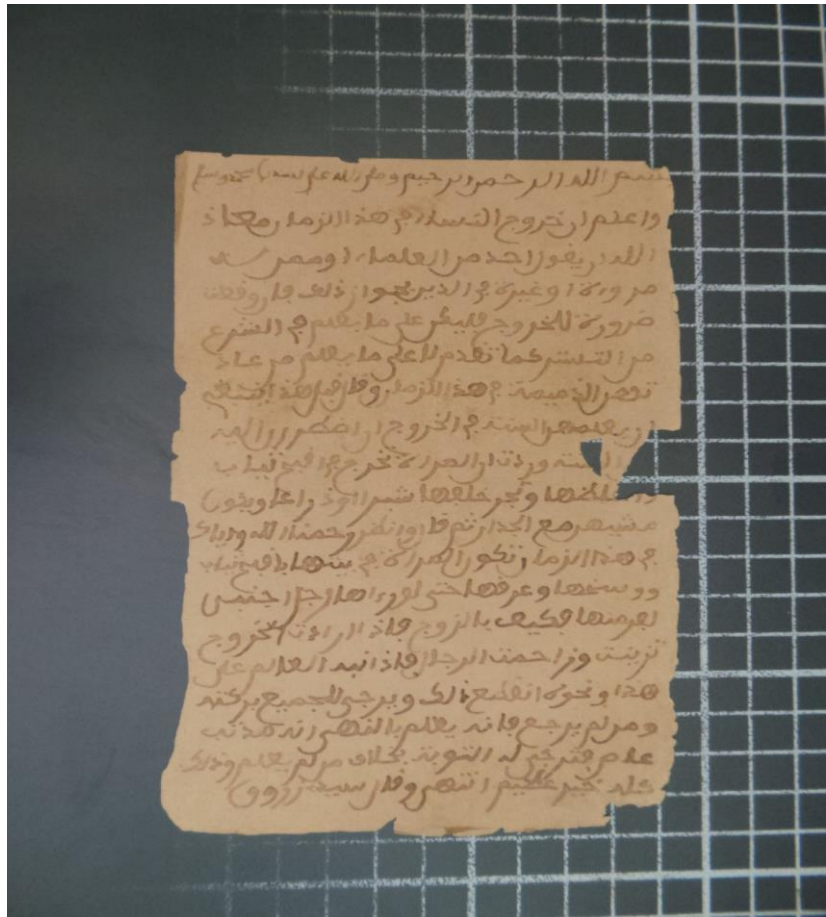 بسم الله الرحمن الرحيم وصلى الله على سيدنا محمد وسلم
واعلم ان خروج النساء في هذا الزمان معاذ
الله ان يقول احد من العلماء او ممن له
مروءة او غيرة في الدين بجواز ذلك فان وقعت
ضرورة للخروج فليكن على ما يعلم في الشرع
من التستر كما تقدم لا على ما يعلم من عادا
تهن الذميمة في هذا الزمان وقال قبل هذا
ان يعلمهن السنة في الخروج ان اضطررن اليه
السنة وردت ان المراة تخرج في اقبح ثيابـ
وتجر خلفها شبرا او ذراعا ويكون
مشيهن مع الجدار ثم قال وانظر رحمنا الله واياك
في هذا الزمان تكون المراة في بيتها باقبح ثياب
ووسخها وعرقها حتى لو رءاها رجل اجنبي
لفر منها فكيف بالزوج فاذا ارادت الخروج
تزينت وزاحمت الرجال فاذا نبه العالم على
هذا ونحوه انقطع ذلك ويرجى للجميع بركته
ومن لم يرجع فانه يعلم بالنهي انه مذنب
عاص فترجى له التوبة بخلاف من لم يعلم وذلك
كله خير عظيم انتهى وقال سيدي زروق